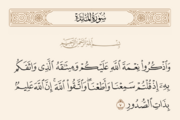 سورة المائدة
بسم الله الرحمن الرحيم
وَاذْكُرُوا نِعْمَةَ اللَّهِ عَلَيْكُمْ وَمِيثَاقَهُ الَّذِي وَاثَقَكُم
بِهِ إِذْ قُلْتُمْ سَمِعْنَا وَأَطَعْنَا وَاتَّقُوا اللَّهَ إِنَّ اللَّهَ عَلِيمٌ
بِذَاتِ الصُّدُورِ ٧